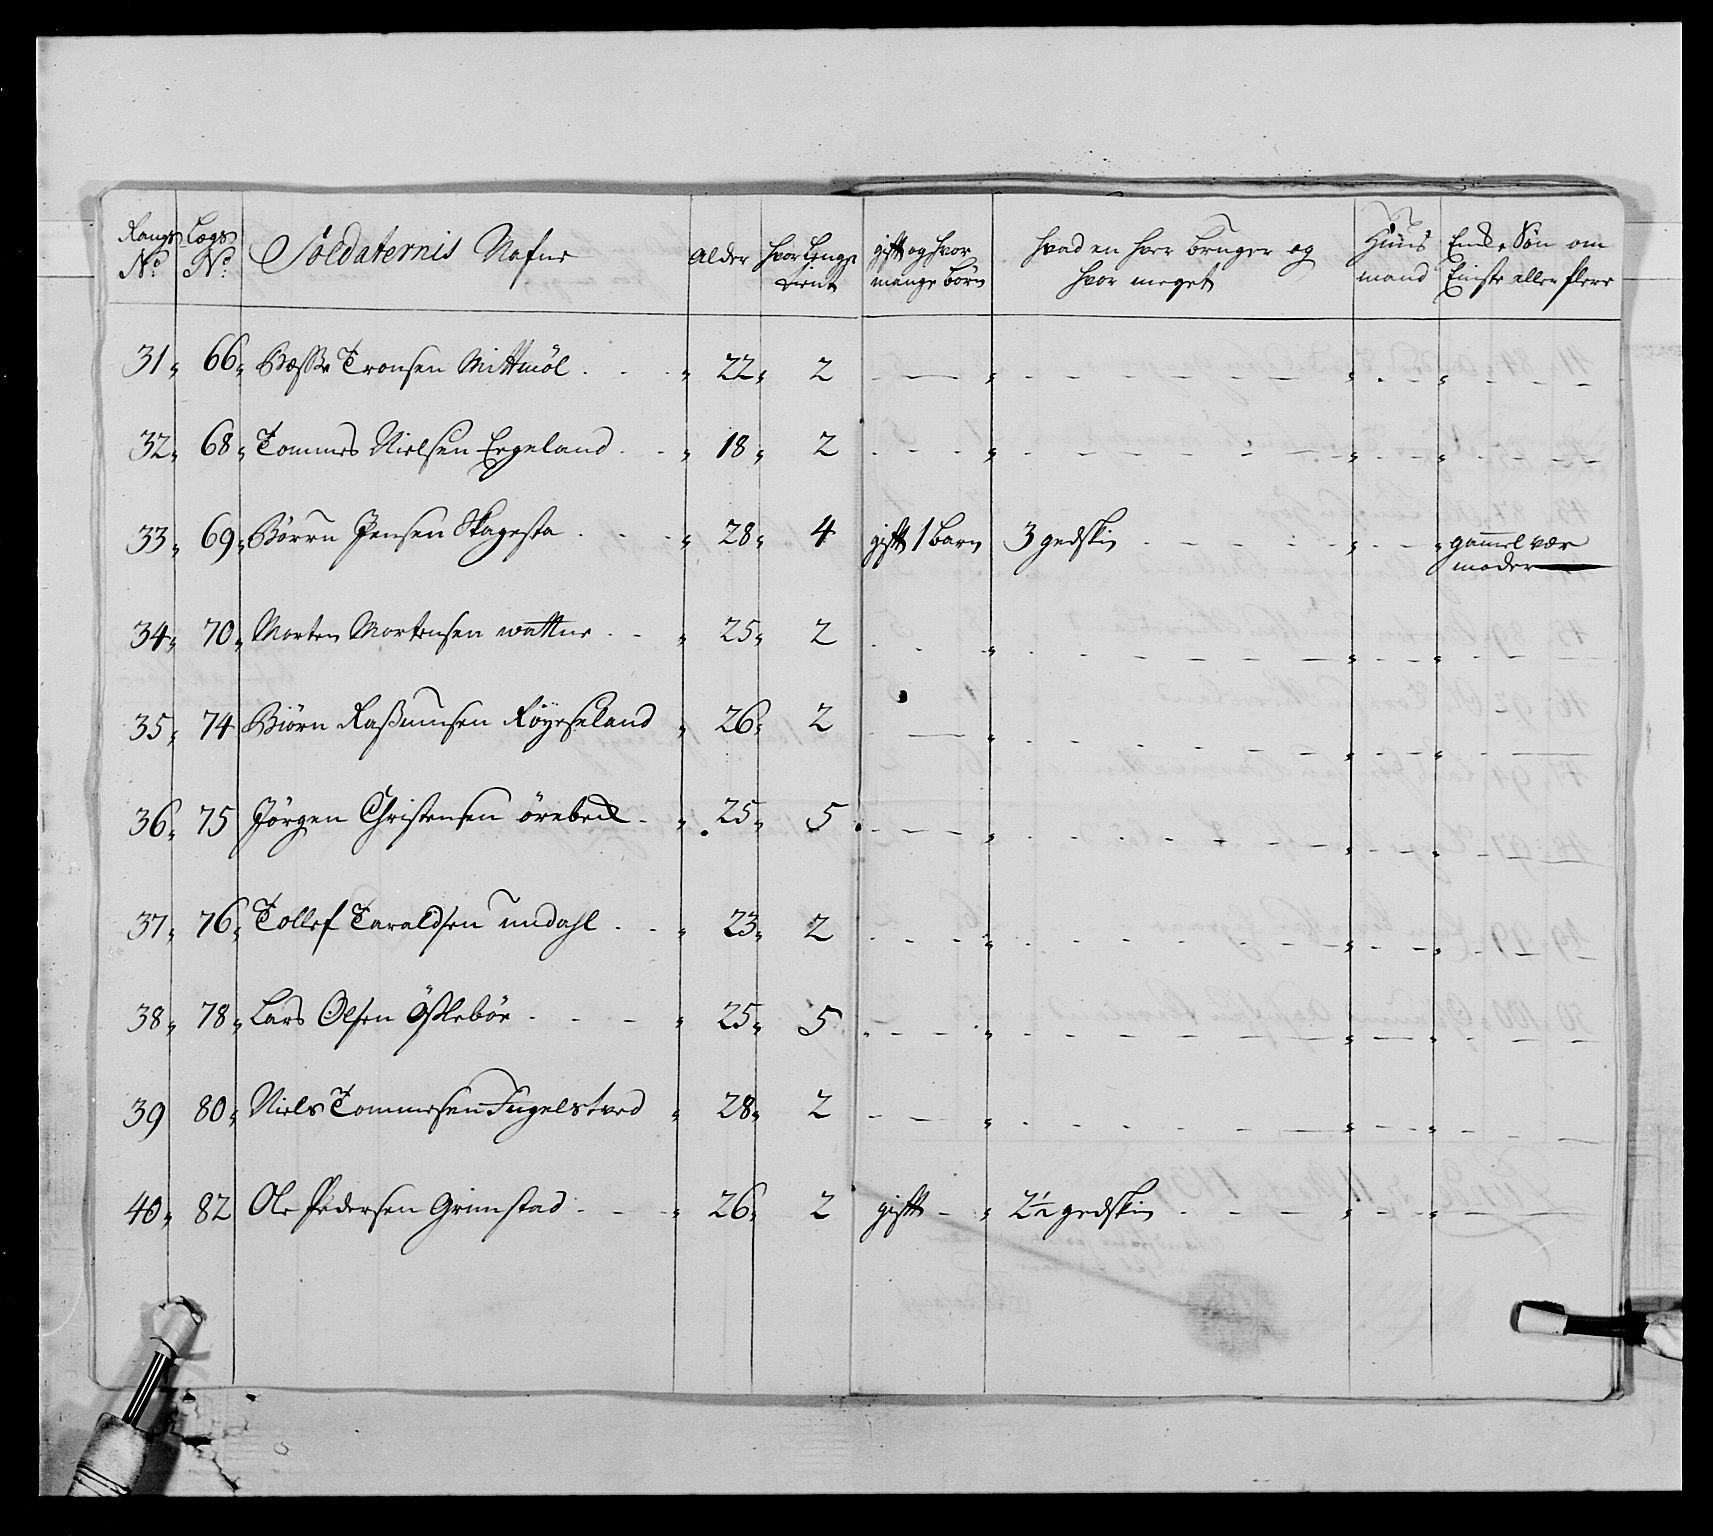 Rangs Lægs Soldaternis Nafne Alder hvor Lenge gift og hvor hvad en hver bruger og Huus Enke Søn om
No No: tient mange børn hvor meget mand Eniste eller flere
31 66 Tronsen 22 2
32 68 Tommes Nielsen Egeland 18 2
33 69 Børrn Jensen Skagesta 28 4 gift 1 barn 3 gedskin gammel vær
moder
34 70 Morten Mortensen wattne 25 2
35 74 Biörn Raßmusen Röyseland 26 2
36 75 Jörgen Christensen örebeck 25 5
37 76 Tollef Taraldsen undahl 23 2
38 78 Lars Olsen Östebör 25 5
39 80 Niels Tommesen Fugelstved 28 2
40 82 Ole Pedersen Grimstad 26 2 gift 2½ gedskin